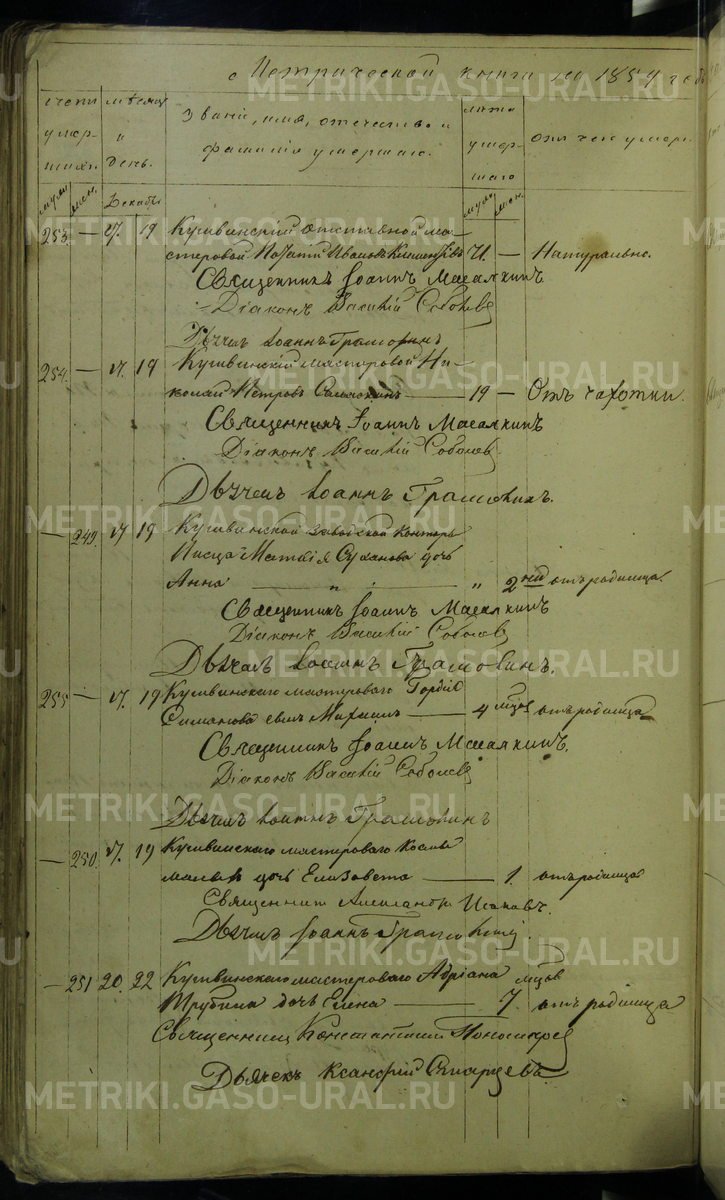 Метрической книги на 1859 годъ
счетъ умершихъ. | мѣсяцъ и день. | Званіе, имя, отчество и фамилія умершаго. | лѣта умершаго | отъ чего умеръ.
муж. | жен. | Декабрь | муж. | жен.
253 — 17. 19 Кушвинскій отставной ма-
стеровой Игнатій Ивановъ — Натурально.
Священникъ Іоаннъ Масалкинъ
Діаконъ Василій Соболевъ
Дьячекъ Іоаннъ Грамолинъ
254. — 17. 19 Кушвинскій мастеровой Ни-
колай Петровъ — 19 — Отъ чахотки.
Священникъ Іоаннъ Масалкинъ
Діаконъ Василій Соболевъ
Дьячекъ Іоаннъ Грамолинъ.
— 249. 17 19 Кушвинской заводской конторы
писца Матвія Суханова дочь
Анна — „ — „ 2 нед. отъ родимца.
Священникъ Іоаннъ Масалкинъ
Діаконъ Василій Соболевъ
Дьячекъ Іоаннъ Грамолинъ.
255 — 17. 19 Кушвинскаго мастероваго Гордія
Симанова сынъ Михаилъ — 4 мцов отъ родимца
Священникъ Іоаннъ Масалкинъ.
Діаконъ Василій Соболевъ
Дьячекъ Іоаннъ Грамолинъ
— 250. 17. 19 Кушвинскаго мастероваго Козмы
дочь Елизавета — 1. отъ родимца
Священникъ Александръ Исаковъ.
Дьячекъ Іоаннъ Грамолинъ.
— 251 20. 22 Кушвинскаго мастероваго Адріана мцов
Трубина дочь Елена — 7. отъ родимца
Священникъ Константинъ Пономаревъ
Дьячекъ Ксанфій Старцевъ
METRIKI.GASO-URAL.RU